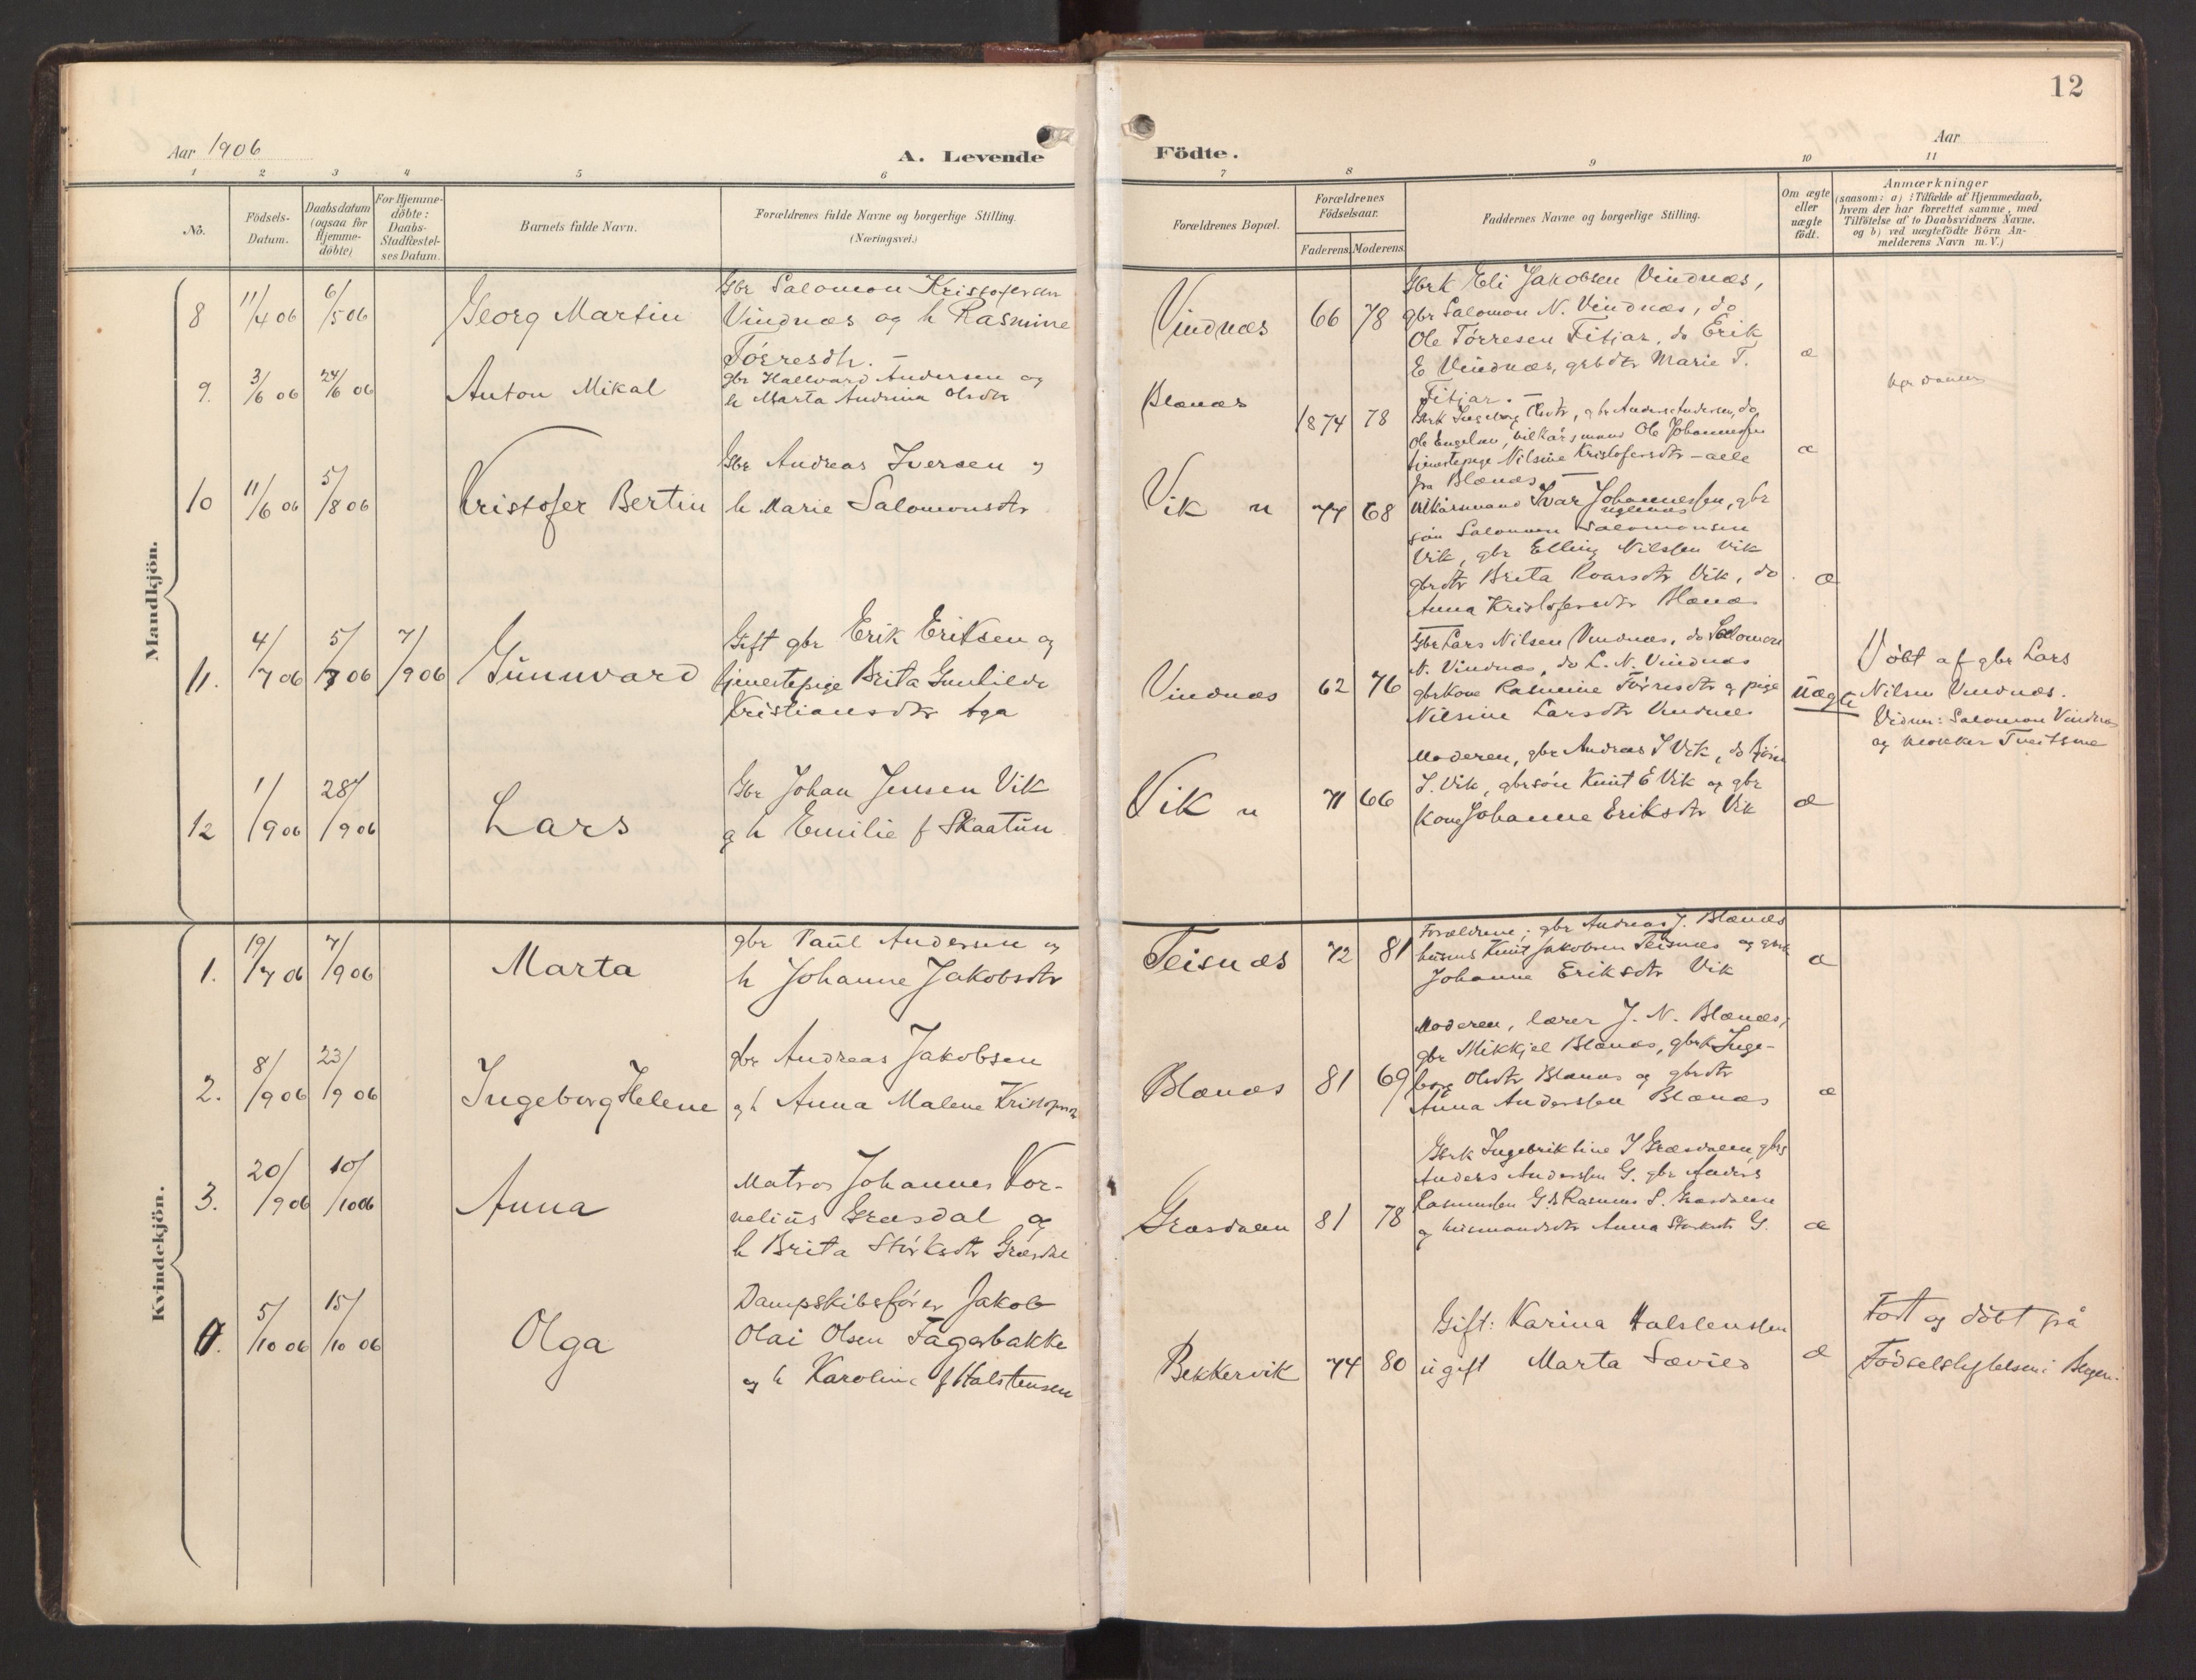 12
Aar 1906
A. Levende
Födte.
Aar
1 2 3 4 5 6 7 8 9 10 11
No.
Födsels-
Datum.
Daabsdatum
(ogsaa for
Hjemme-
döbte)
For Hjemme-
döbte:
Daabs-
Stadfæstel-
ses Datum.
Barnets fulde Navn.
Forældrenes fulde Navne og borgerlige Stilling.
(Næringsvei.)
Forældrenes Bopæl.
Forældrenes
Födselsaar.
Faderens. Moderens.
Faddernes Navne og borgerlige Stilling.
Om ægte
eller
uægte
födt.
Anmærkninger
(saasom: a) i Tilfælde af Hjemmedaab,
hvem der har forrettet samme, med
Tilföielse af to Daabsvidners Navne,
og b) ved uægtefödte Börn An-
melderens Navn m. V.)
Mandkjön.
8 11/4 06 6/5 06 Georg Martin
Gbr Salomon Kristofersen
Vindnæs og h Rasmine
Tórresdtr. –
Vindnæs 66 78
Gbrk Eli Jakobsen Vindnæs,
gbr Salomon N. Vindnæs, do
Ole Tórresen Fitjar, do Erik
E Vindnæs, grbdtr Marie T.
Fitjar. –
æ
9. 3/6 06 24/6 06 Anton Mikal
gbr Hallvard Andersen og
h Marta Andrina Olsdtr
Blænæs 1874 78
Gbrk Ingeborg Olsdtr, gbr Anders Andersen, do
Ole Engelsen, vilkårsmand Ole Johannessen
tjenestepige Nilsine Kristofersdtr – alle
fra Blænæs –
æ
10 11/6 06 5/8 06 Kristofer Bertin
Gbr Andreas Iversen og
h Marie Salomonsdtr
Vik n 74 68
Vilkårsmand Ivar Johannessen, gbr
søn Salomon Salomonsen
Vik, gbr Elling Nilssen Vik
gbrdtr Brita Roarsdtr Vik, do
Anna Kristofersdtr Blænæs
æ
11. 4/7 06 5/7 06 7/9 06 Gunnvard
Gift gbr Erik Eriksen og
tjenestepige Brita Gunhilda
Kristiansdtr Aga
Vindnæs 62 76
Gbr Lars Nilsen Vindnæs, do Salomon
N. Vindnæs, do L. N. Vindnæs
gbrkone Rasmine Tórresdtr og pige
Nilsine Larsdtr Vindnæs
Uægte
Döbt af gbr Lars
Nilsen Vindnæs.
Vidner: Salomon Vindnæs
og klokker Tveitsme
12 1/9 06 28/9 06 Lars
Gbr Johan Jensen Vik
og h Emilie f Skaatun
Vik n 71 66
Moderen, gbr Andreas I Vik, do Björn
I. Vik, gbrsön Knut E Vik og gbr
kone Johanne Eriksdtr Vik
æ
Kvindekjön.
1. 19/7 06 7/9 06 Marta
gbr Paul Andersen og
h Johanne Jakobsdtr
Teisnæs 72 81
Forældrene; gbr Andreas J. Blænæs
husms Knut Jakobsen Teisnæs og gbrk
Johanne Eriksdtr Vik
æ
2. 8/9 06 23/9 06 Ingeborg Helene
gbr Andreas Jakobsen
og h Anna Malene Kristofersdtr
Blænæs 81 69
Moderen, lærer J. N. Blænæs,
gbr Mikkjel Blænæs, gbrk Inge-
borg Olsdtr Blænæs og gbrdtr
Anna Anderssen Blænæs
æ
3. 20/9 06 10/10 06 Anna
Matros Johannes Kor-
nelius Græsdal og
h Brita Störksdtr Græsdal
Græsdalen 81 78
Gbrk Ingebriktine I Græsdalen, gbrs
Anders Anderssen G. gbr Anders
Rasmussen G. do Rasmus S. Græsdalen
og husmandsdtr Anna Störksdtr G.
æ
4. 5/10 06 15/10 06 Olga
Dampskibsförer Jakob
Olai Olsen Fagerbakke
og h Karoline f Halstensen
Bekkervik 74 80
Gift: Karina Halstenssen
ugift Marta Sævied
æ
Födt og döbt på
Födselsstiftelsen i Bergen.